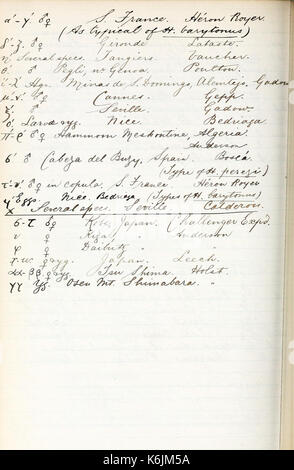 α'-γ'. ♂♀ S. France. Héron Royer
(As typical of H. barytonus)
δ'-ζ'. ♂♀ Gironde Lataste.
η. Several specs. Tangiers. Vaucher.
θ. ♂ Pegli, nr Genoa. Poulton.
Hgr. Minas de S. Domingo, Alemtejo. Gadow
μ-ν. ♂♀ Cannes. Gepp.
♂ Seville Gadow
ο. Larvæ & yg. Nice. Bedriaga
π-ρ ♂♀ Hammam Meskoutine, Algeria.
Anderson
ς. ♂ Cabeza del Buey, Spain. Boscá.
(Type of H. perezi)
τ-υ. ♂♀ in copula, S. France. Héron Royer
φ. Eggs. Nice. Bedriaga. (Types of H. barytonus)
χ Several specs. Seville Calderon.
σ-τ. ♂♀ Kobe, Japan. Challenger Expd.
υ ♀ Anderson
φ ♀ Daibutz "
♀, yg. Japan. Leech.
αα-ββ. ♀, yg. Tsu Shima. Holst.
γγ yg. Osen Mt. Shimabara. "
alamy
Image ID: K6JM5A
www.alamy.com